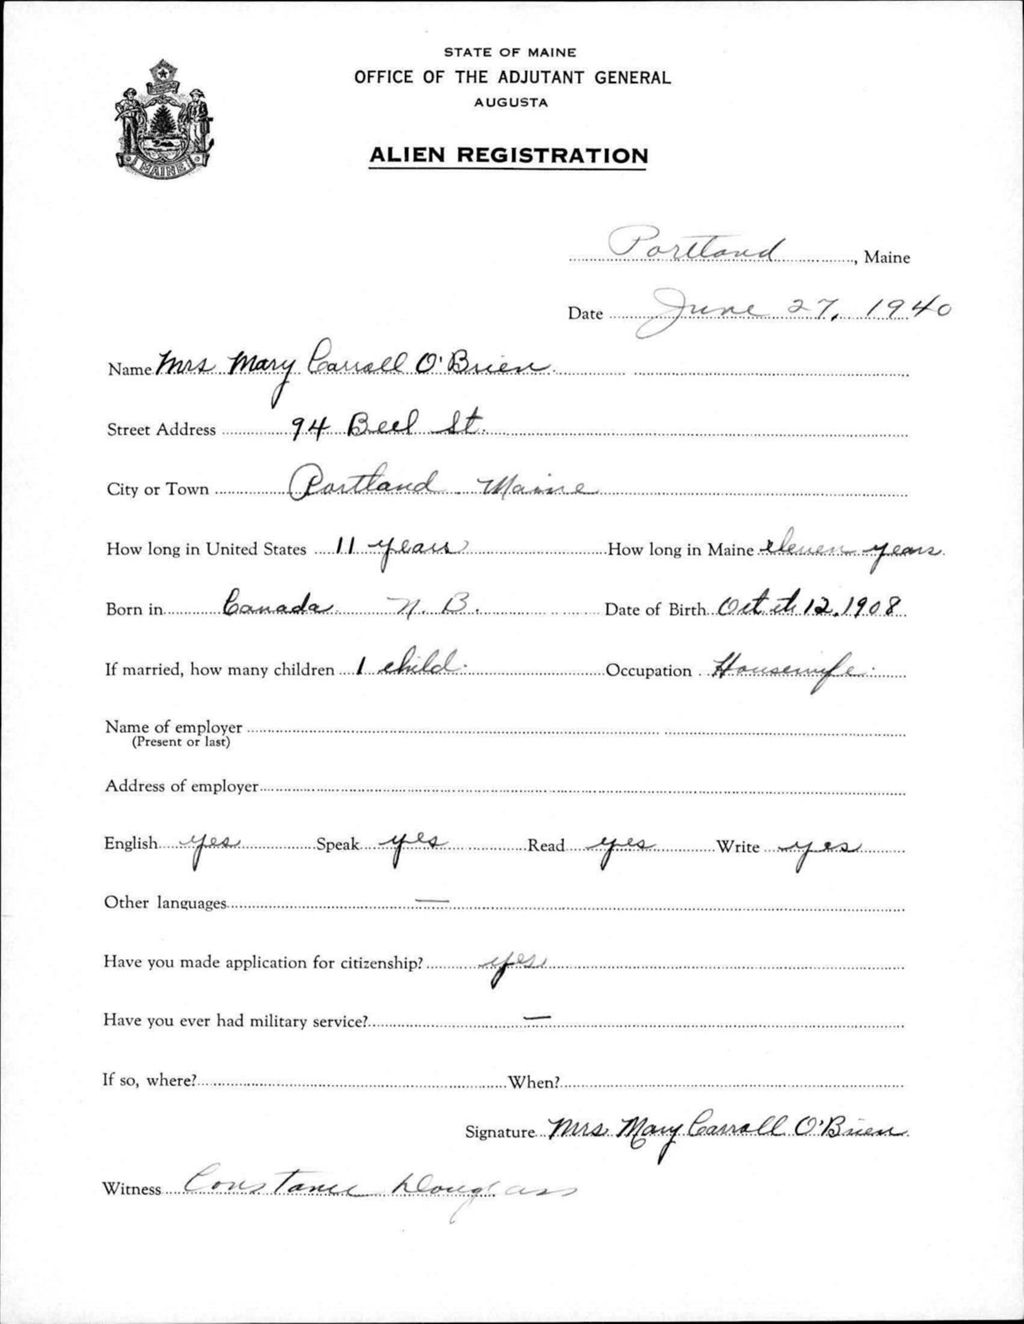 STATE OF MAINE
OFFICE OF THE ADJUTANT GENERAL
AUGUSTA
ALIEN REGISTRATION
MAINE
Portland, Maine
Date June 27, 1940
Name Mrs Mary Carroll O'Brien
Street Address 94 St.
City or Town Portland Maine
How long in United States 11 years How long in Maine eleven years
Born in Canada N. B. Date of Birth 12, 1908
If married, how many children 1 child. Occupation Housewife.
Name of employer
(Present or last)
Address of employer
English yes Speak yes Read yes Write yes
Other languages —
Have you made application for citizenship? yes
Have you ever had military service? —
If so, where? When?
Signature Mrs. Mary Carroll O'Brien
Witness Constance Douglass